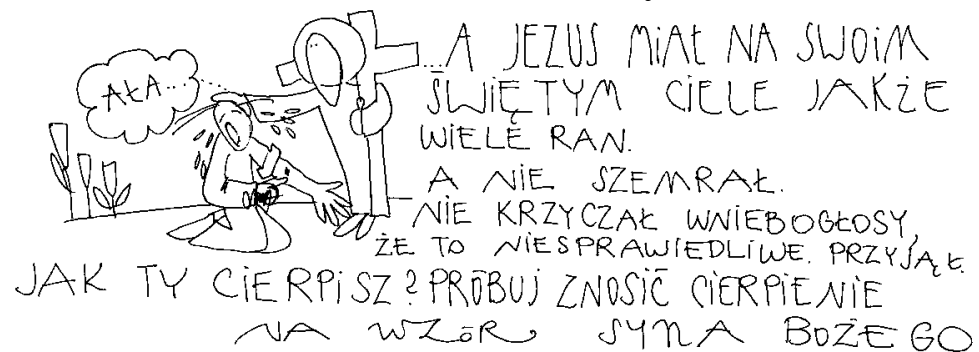 AŁA...
...A JEZUS MIAŁ NA SWOIM
ŚWIĘTYM CIELE JAKŻE
WIELE RAN.
A NIE SZEMRAŁ.
NIE KRZYCZAŁ WNIEBOGŁOSY,
ŻE TO NIESPRAWIEDLIWE. PRZYJĄŁ.
JAK TY CIERPISZ? PRÓBUJ ZNOSIĆ CIERPIENIE
NA WZÓR SYNA BOŻEGO